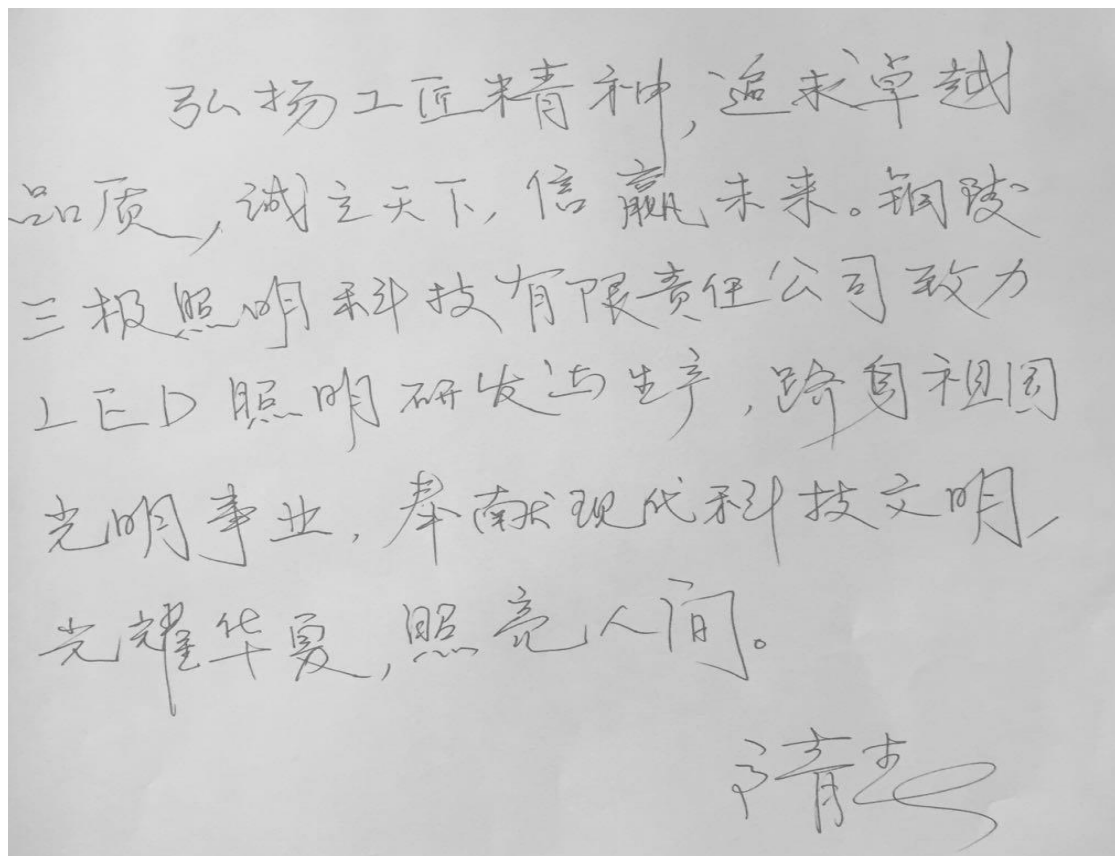 弘扬工匠精神,追求卓越
品质,诚立天下,信赢未来。铜陵
三极照明科技有限责任公司致力
LED照明研发与生产,跻身祖国
光明事业,奉献现代科技文明,
光耀华夏,照亮人间。